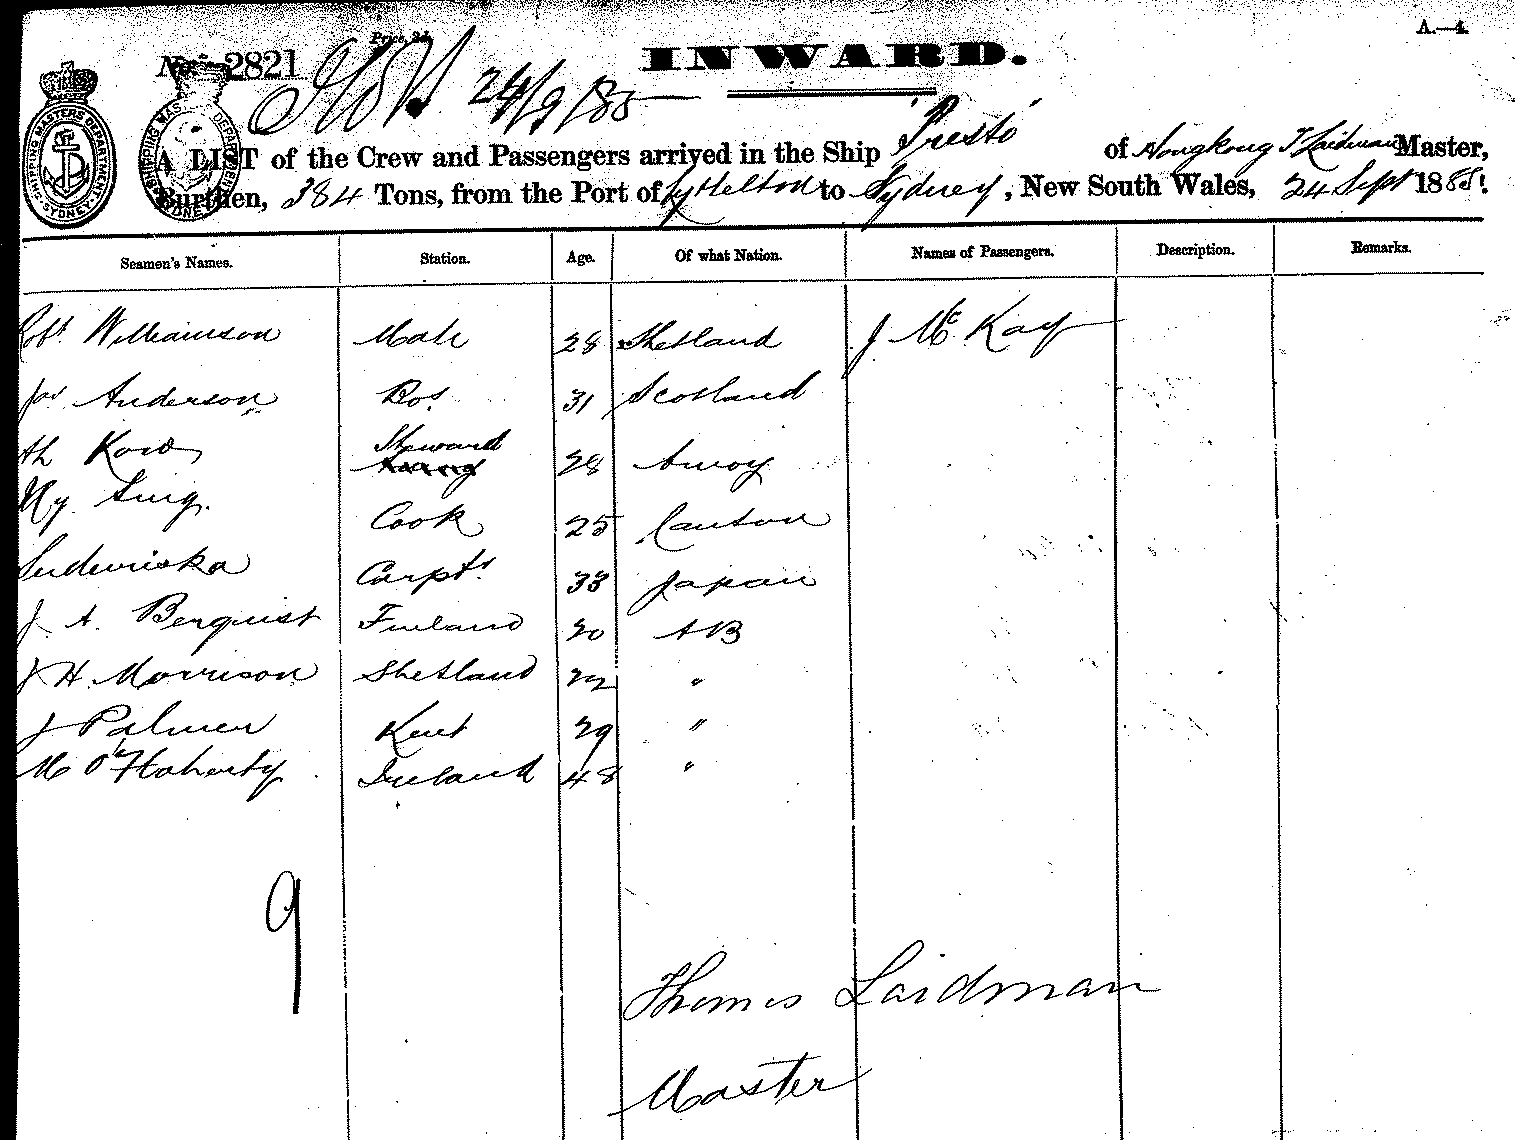 A.—4.
Price 3d.
No. 2821
INWARD.
24/9/85
SHIPPING MASTERS DEPARTMENT SYDNEY
SHIPPING MAS DEPARTMENT SYDNEY
A LIST of the Crew and Passengers arrived in the Ship 'Presto' of Hongkong T Laidman Master,
Burthen, 384 Tons, from the Port of Lyttelton to Sydney, New South Wales, 24 Sept 1885.
Seamen's Names. Station. Age. Of what Nation. Names of Passengers. Description. Remarks.
Robt Williamson Mate 28 Shetland J McKay
Jas Anderson Bos. 31 Scotland
Ah Kow Steward 28 Amoy
Hy Sing. Cook 25 Canton
Carptr 33 Japan
J A. Berquist Finland 20 AB
J H. Morrison Shetland 22 "
J Palmer Kent 29 "
M O'Flaherty Ireland 48 "
9
Thomas Laidman
Master